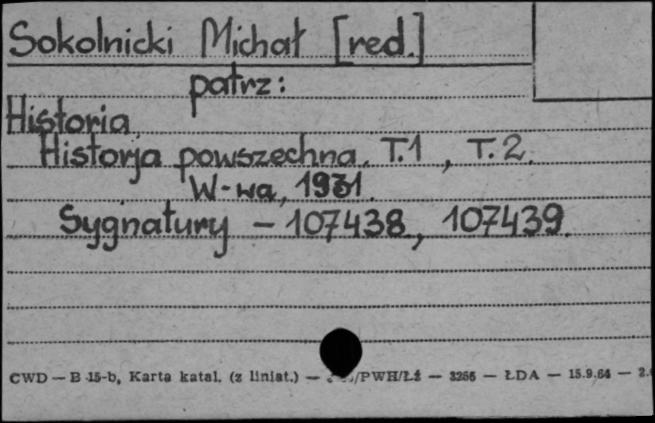 Sokolnicki Michał [red.]
patrz:
Historia
Historja powszechna. T.1, T.2.
W-wa, 1931.
Sygnatury – 107438, 107439.
CWD — B 15-b, Karta katal. (z liniat.) — /PWH/Łż — 3256 — ŁDA — 15.9.64 —